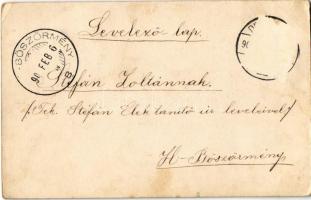 Levelező lap.
BÖSZÖRMÉNY
90 FEB 6
90
Stefán Zoltánnak.
/:Tek. Stefán Elek tanító úr leveleivel/
H-Böszörmény